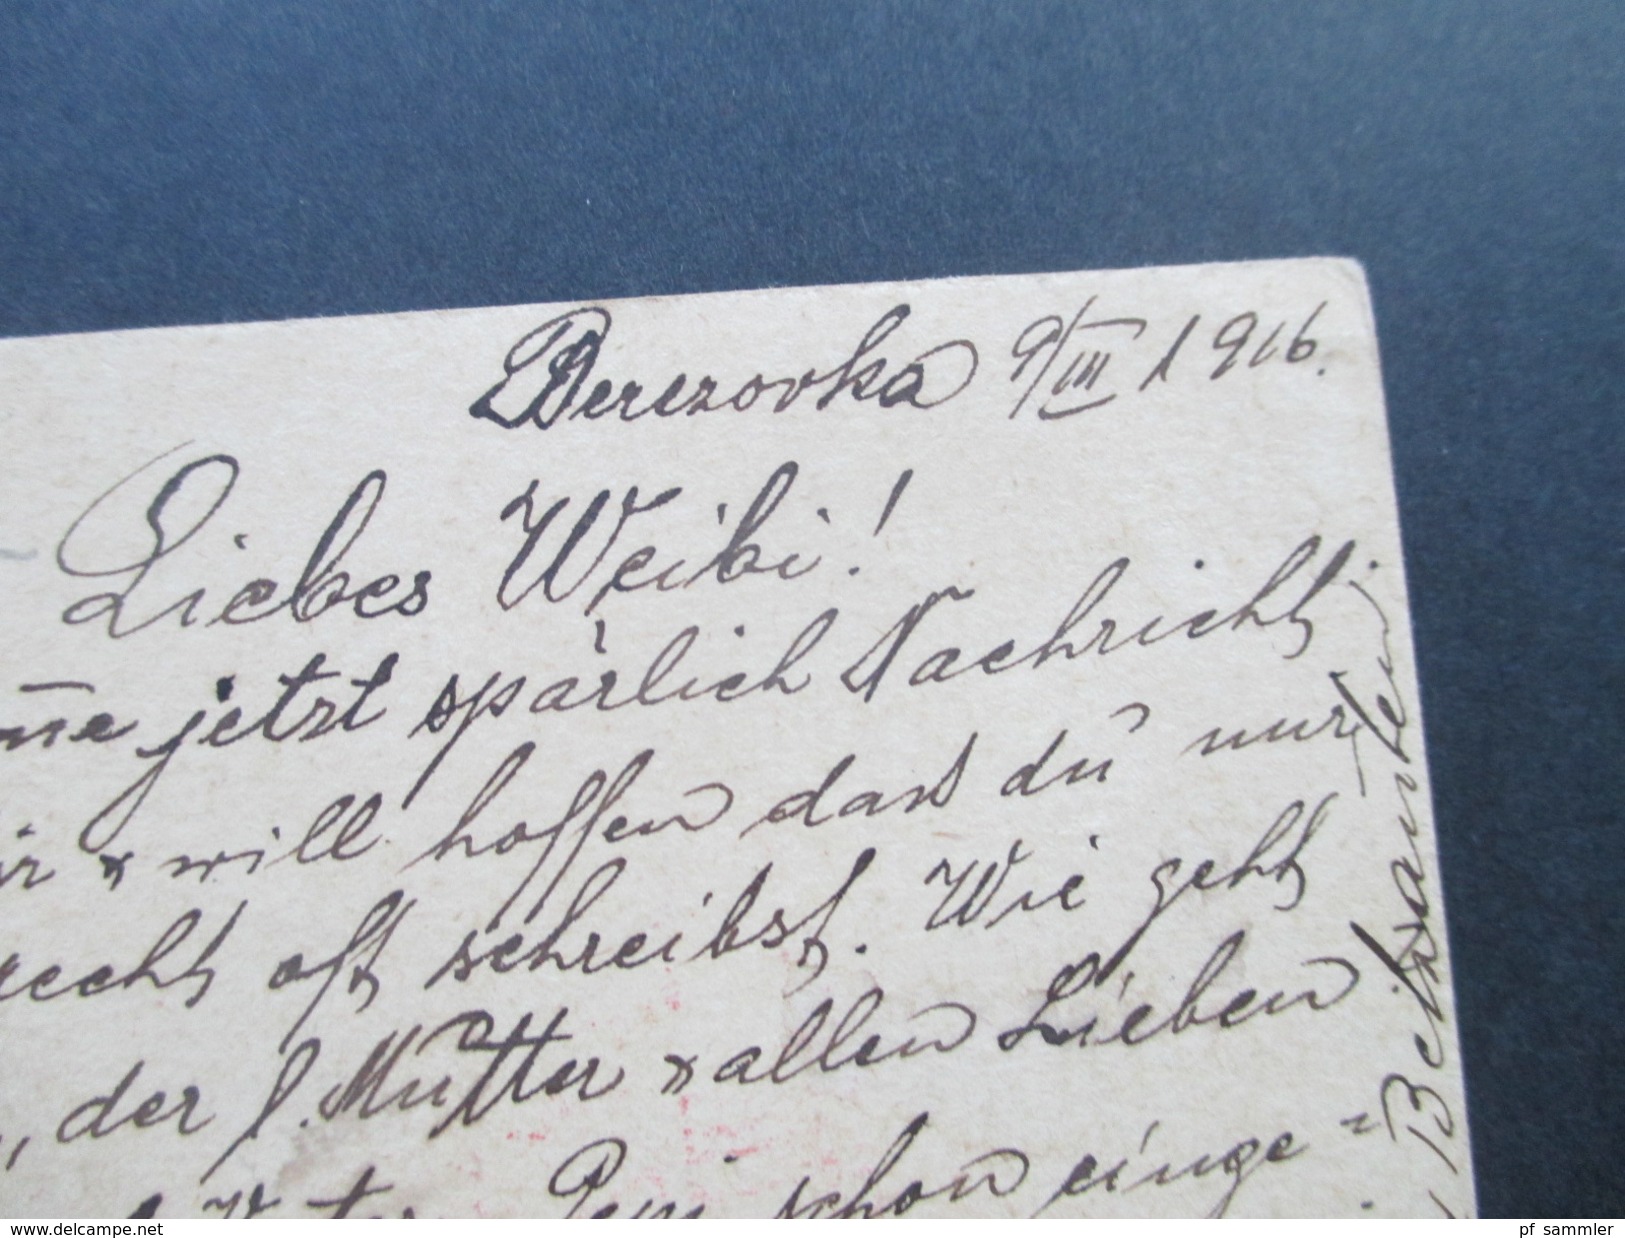 Berezovka 9/III 1916.
Liebes Weibi!
jetzt spärlich Nachricht
& will hoffen dass du nur
recht oft schreibst. Wie geht
, der l. Mutter & allen Lieben
schon einge=
Bekannten
www.delcampe.net
pf_sammler